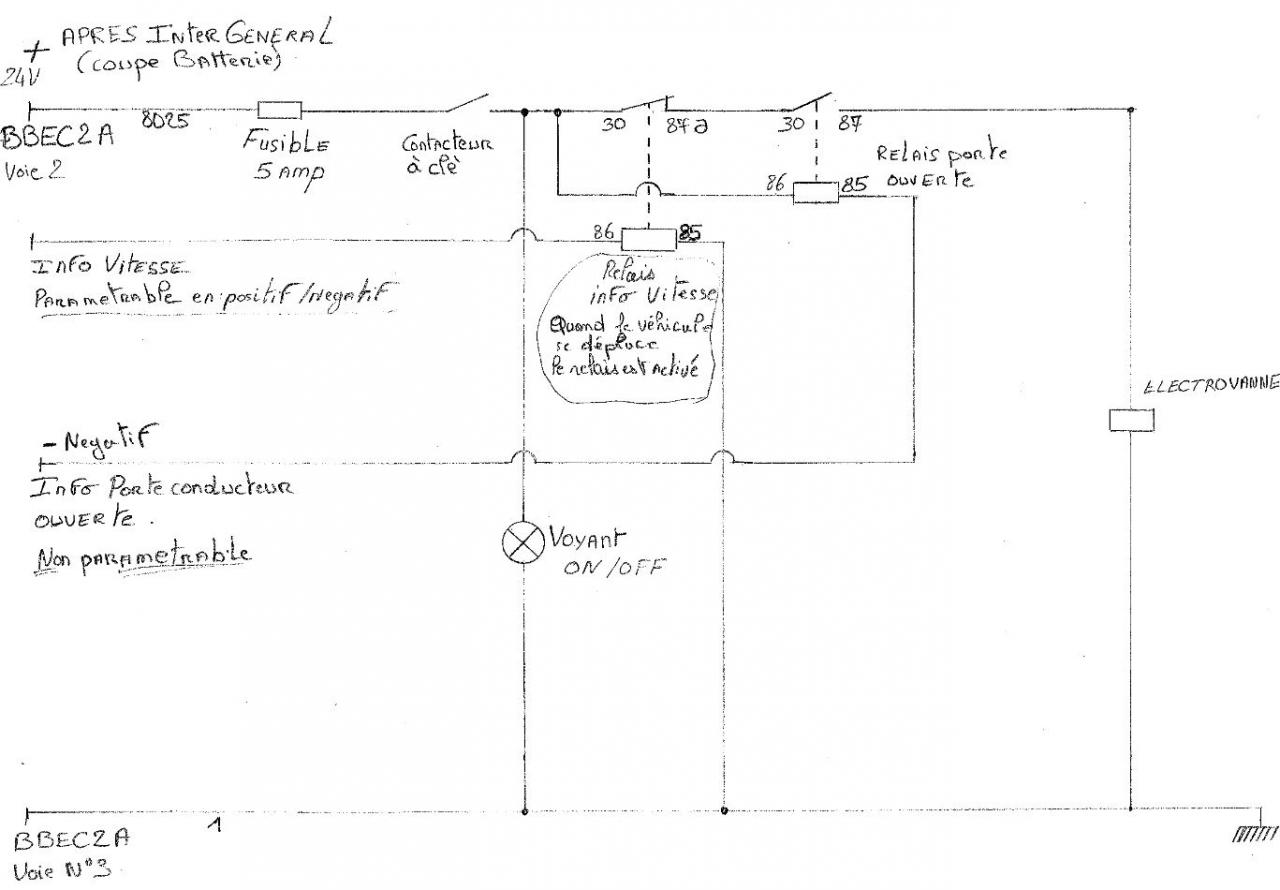 + APRES INTER GENERAL
24V (coupe Batterie)
8025
BBEC2A
Voie 2
Fusible
5 AMP
Contacteur
à clé
30 87a
30 87
Relais porte
ouverte
86 85
86 85
Info Vitesse
Parametrable en positif/Negatif
Relais
info Vitesse
Quand le véhicule
se déplace
le relais est Activé
ELECTROVANNE
- Negatif
Info Porte conducteur
ouverte.
Non parametrable
Voyant
ON/OFF
1
BBEC2A
Voie N°3